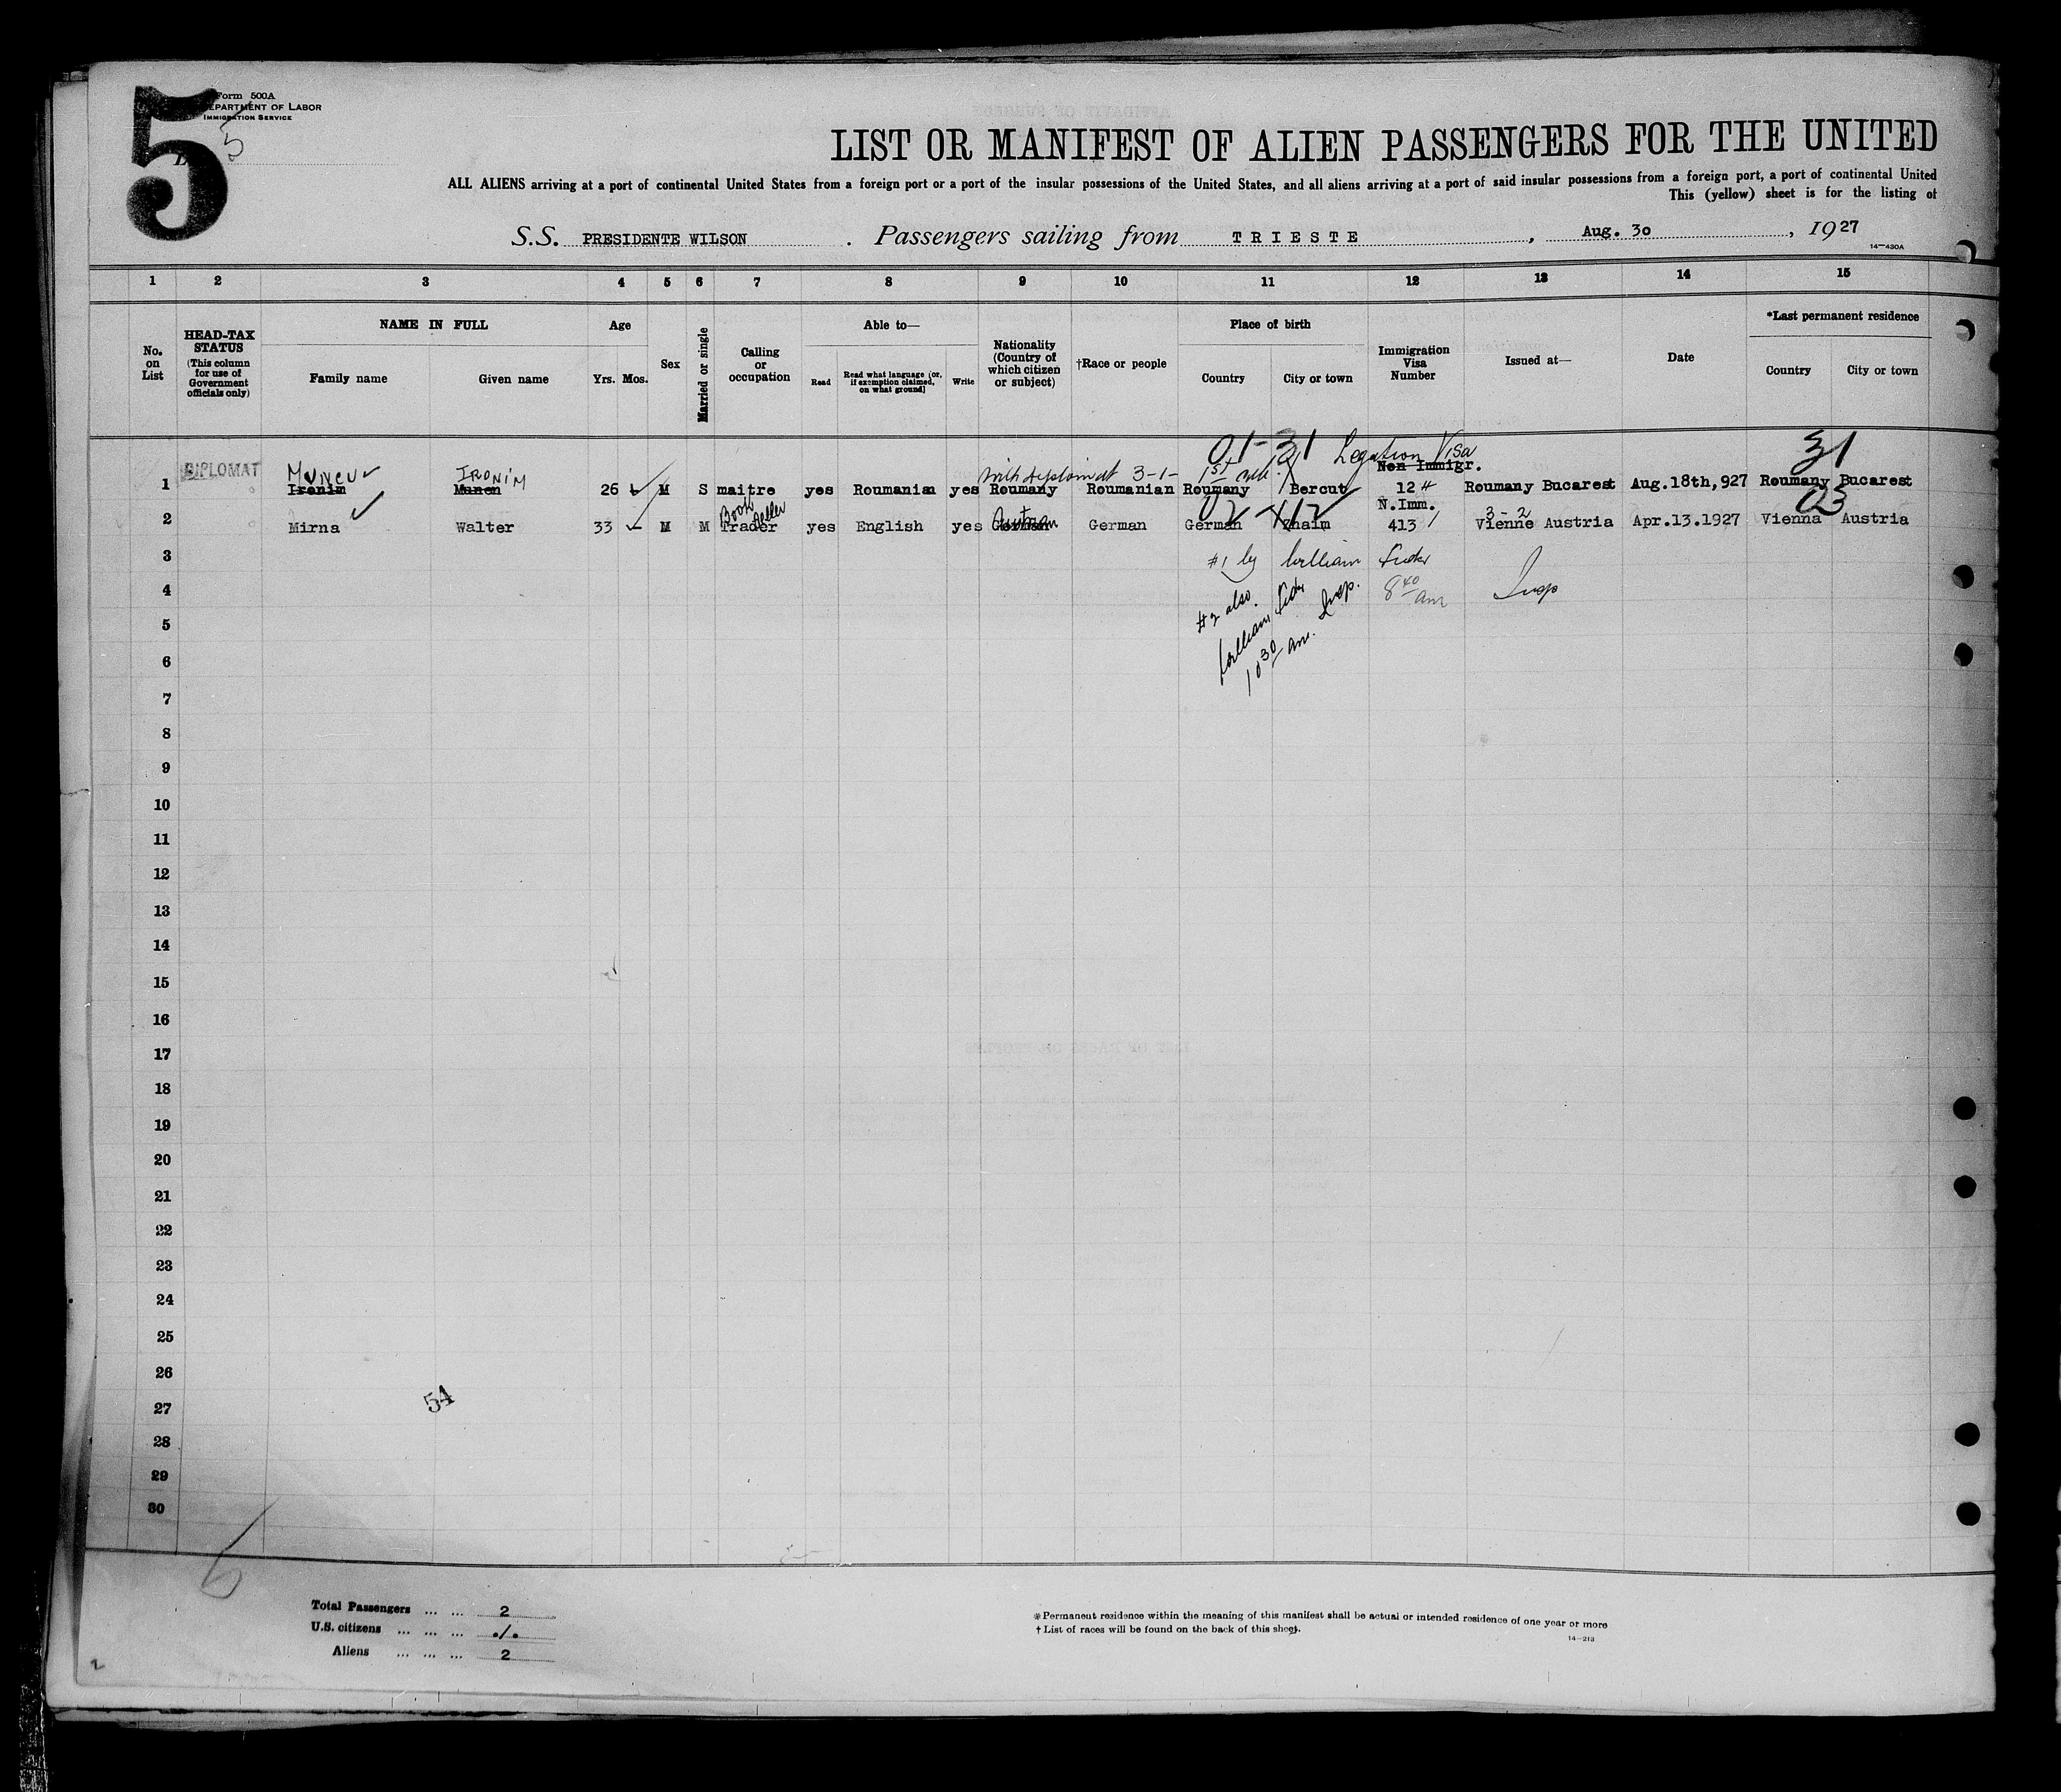 5
Form 500A
DEPARTMENT OF LABOR
IMMIGRATION SERVICE
5
LIST OR MANIFEST OF ALIEN PASSENGERS FOR THE UNITED
ALL ALIENS arriving at a port of continental United States from a foreign port or a port of the insular possessions of the United States, and all aliens arriving at a port of said insular possessions from a foreign port, a port of continental United
This (yellow) sheet is for the listing of
S.S. PRESIDENTE WILSON . Passengers sailing from TRIESTE , Aug. 30 , 1927
14—430A
1 2 3 4 5 6 7 8 9 10 11 12 13 14 15
No. on List
HEAD-TAX STATUS
(This column for use of Government officials only)
NAME IN FULL
Family name Given name
Age
Yrs. Mos.
Sex
Married or single
Calling or occupation
Able to—
Read
Read what language (or, if exemption claimed, on what ground)
Write
Nationality (Country of which citizen or subject)
†Race or people
Place of birth
Country City or town
Immigration Visa Number
Issued at—
Date
*Last permanent residence
Country City or town
01-31 Legation Visa 31
DIPLOMAT IRONIM 3-1- 1st Non Immigr.
1 Ironim Munon 26 M S maitre yes Roumanian yes Roumany Roumanian Roumany Bercut 12 Roumany Bucarest Aug.18th,927 Roumany Bucarest
Book seller 02 N.Imm. 3-2 03
2 Mirna Walter 33 M M Trader yes English yes German German German Znaim 413 Vienne Austria Apr.13.1927 Vienna Austria
3 #1 by William
4 8 40 am Insp
#2 also.
William Insp.
10 30 am.
5
6
7
8
9
10
11
12
13
14
15
16
17
18
19
20
21
22
23
24
25
26
27
54
28
29
30
6
Total Passengers ... ... 2
U.S. citizens ... ... ... ./.
Aliens ... ... ... 2
*Permanent residence within the meaning of this manifest shall be actual or intended residence of one year or more
† List of races will be found on the back of this sheet.
14—213